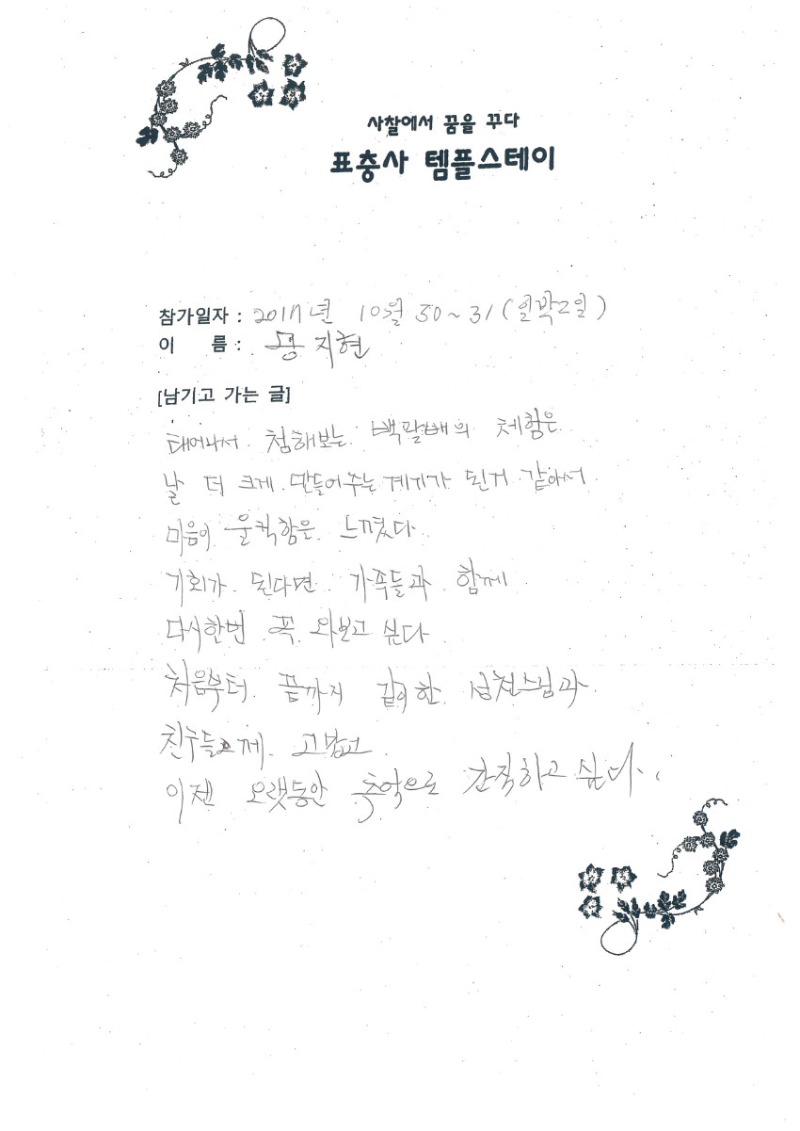 사찰에서 꿈을 꾸다
표충사 템플스테이
참가일자 : 2017년 10월 30~31 (일박2일)
이 름 : 지현
[남기고 가는 글]
태어나서 첨해보는 백팔배의 체험은
날 더 크게 만들어주는 계기가 된거 같아서
마음이 울컥함은 느꼈다
기회가 된다면 가족들과 함께
다시한번 꼭 와보고 싶다
처음부터 끝까지 같이한 스님과
친구들께 고맙고
이젠 오랫동안 추억으로 간직하고 싶다.